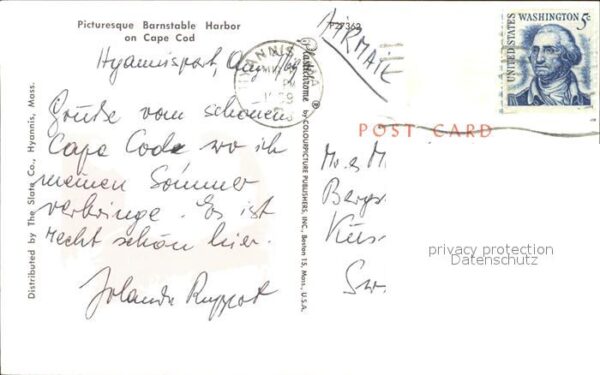 Picturesque Barnstable Harbor
on Cape Cod
Hyannisport, Aug
Grüße vom schönen
Cape Code wo ich
meinen Sommer
verbringe. Es ist
recht schön hier.
Jolanda Ruppert
Distributed by The Slate Co., Hyannis, Mass.
Plastichrome ® by COLOURPICTURE PUBLISHERS, INC., Boston 15, Mass., U.S.A.
P27362
AIRMAIL
HYANNIS
PM
UNITED STATES
WASHINGTON 5c
POST CARD
privacy protection
Datenschutz